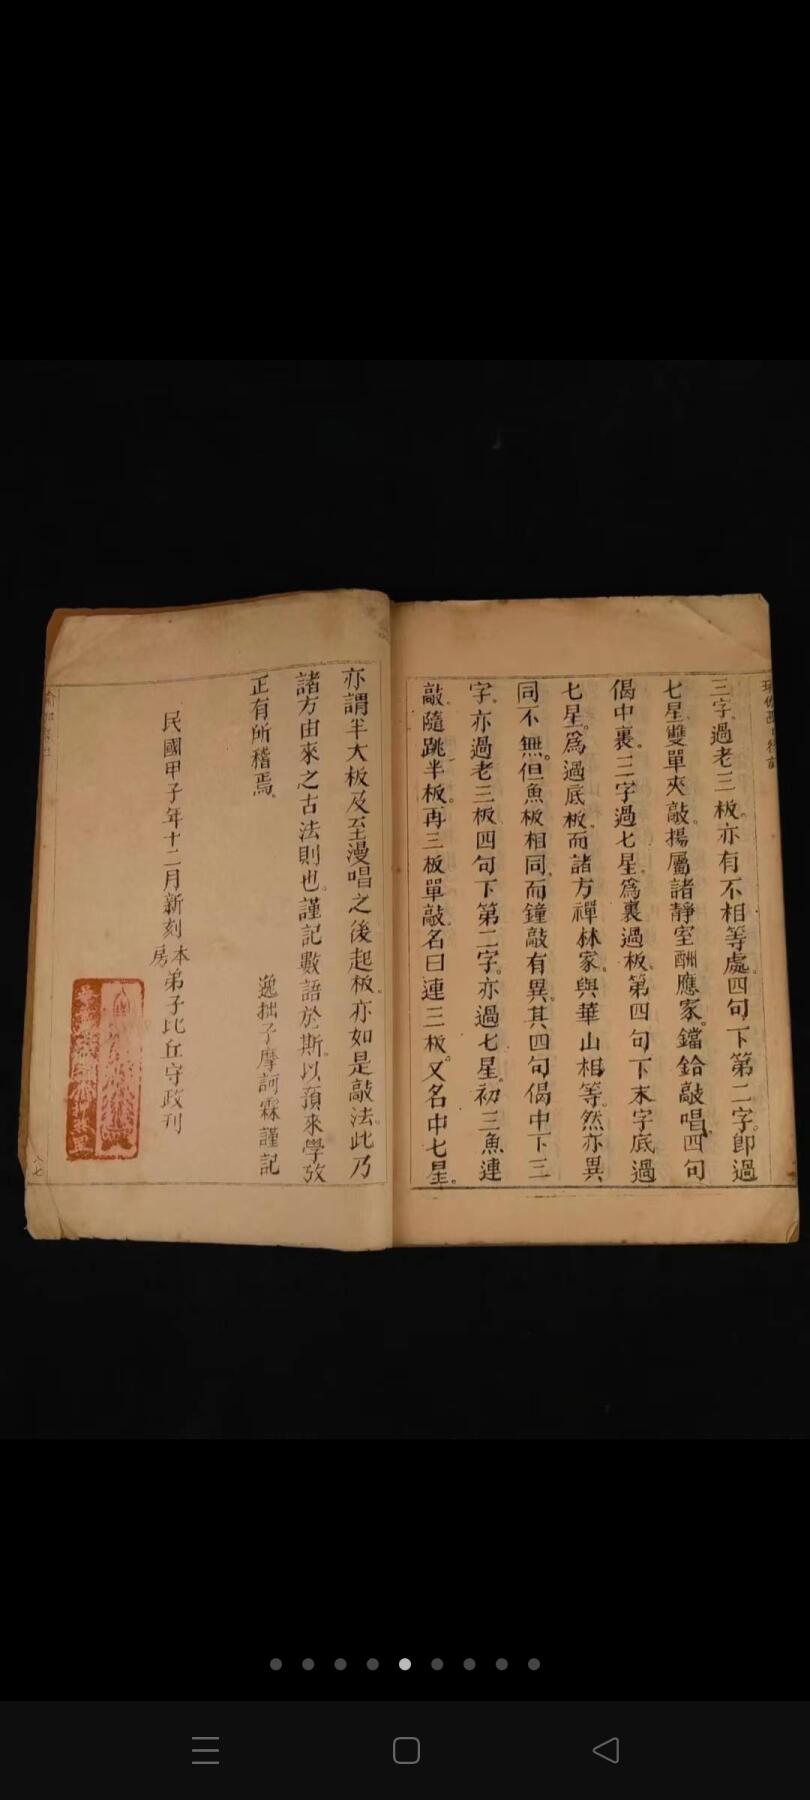 三字。過老三板。亦有不相等處。四句下第二字。即過
七星。雙單夾敲。揚屬諸靜室酬應家。鐺鉿敲唱。四句
偈中裏。三字過七星。爲裏過板。第四句下末字底過
七星。爲過底板。而諸方禪林家。與華山相等。然亦異
同不無。但魚板相同。而鐘敲有異。其四句偈中下三
字。亦過老三板。四句下第二字。亦過七星。初三魚連
敲。隨跳半板。再三板單敲。名曰連三板。又名中七星。
亦謂半大板。及至漫唱之後起板。亦如是敲法。此乃
諸方由來之古法則也。謹記數語於斯。以預來學攷
正有所稽焉。
逸拙子摩訶霖謹記
民國甲子年十二月新刻本房弟子比丘守政刊
八七